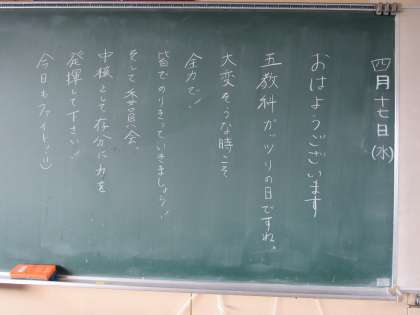 四月十七日(水)
おはようございます
五教科ガッツリの日ですね。
大変そうな時こそ
全力で!
皆でのりきっていきましょう!
そして委員会。
中核として存分に力を
発揮して下さい!
今日もファイトッ!!